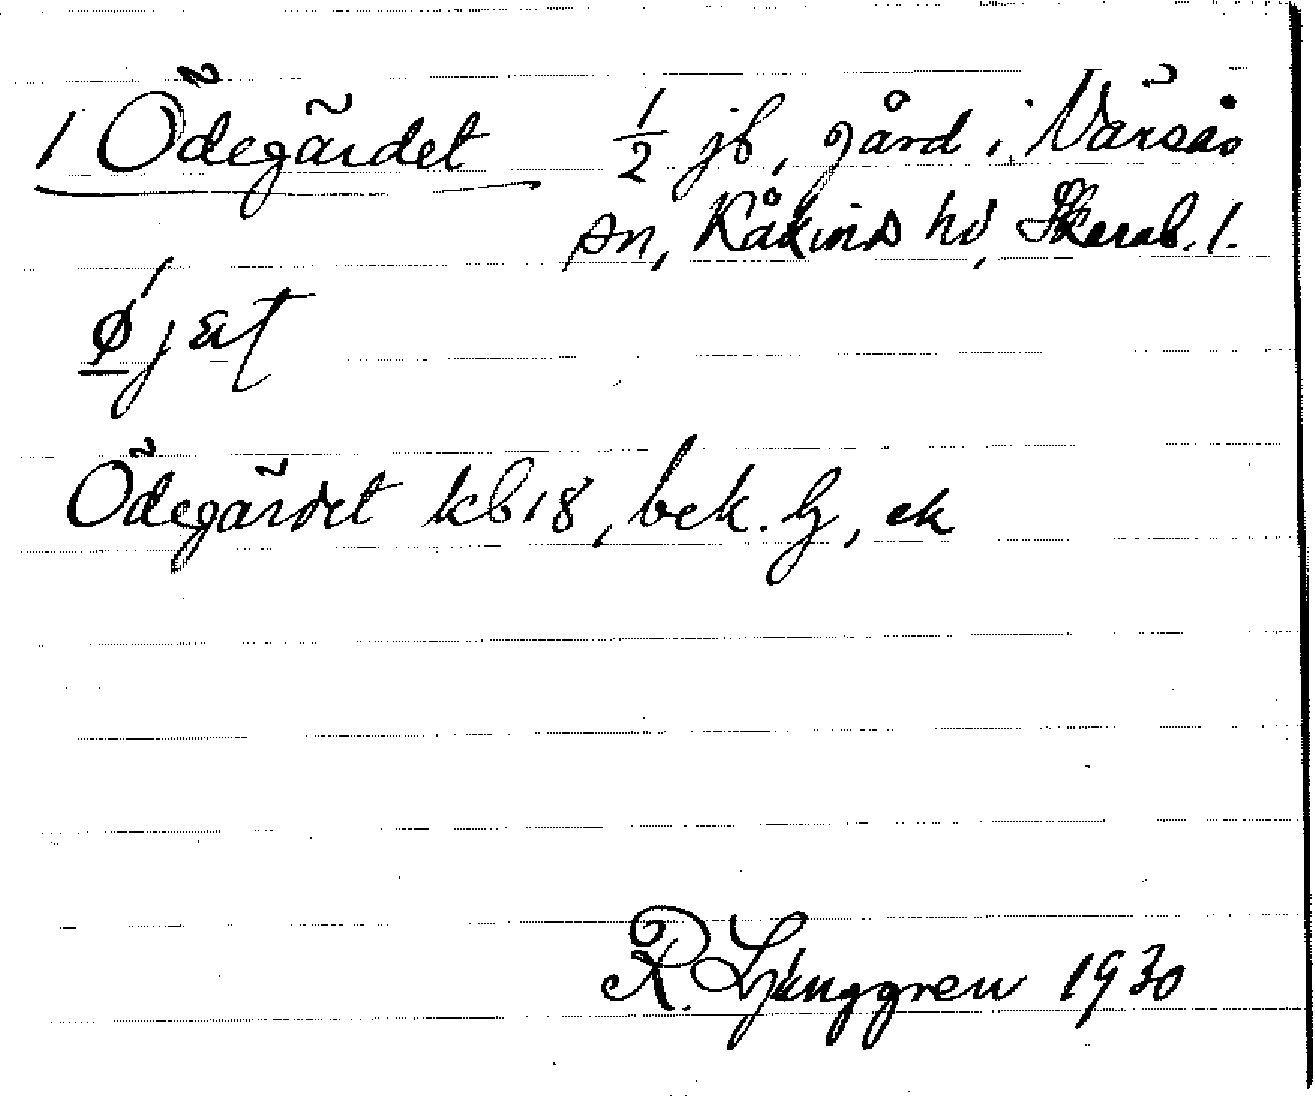 1 Ödegärdet ½ jb, gård i Värsås
sn, Kåkinds hd, Skarab. l.
ǿjæt
Ödegärdet kb 18, bek. G, ek
R. Ljunggren 1930